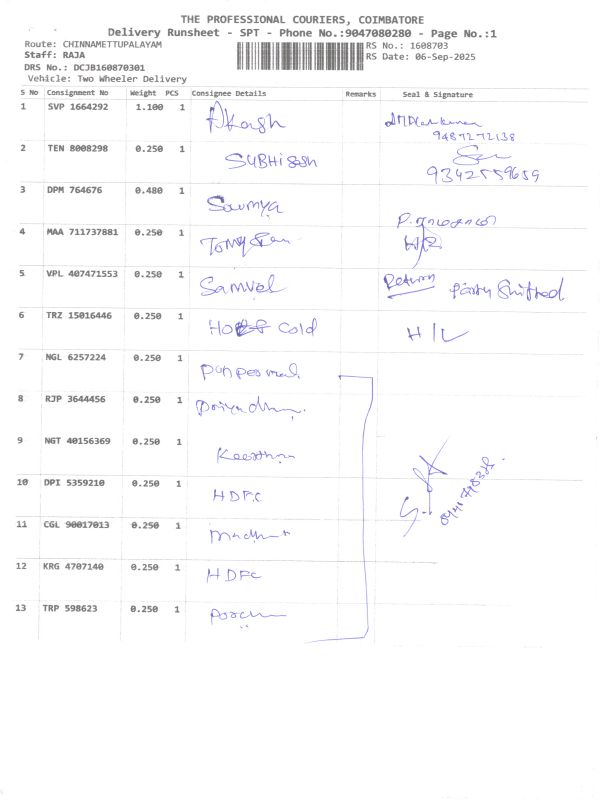 THE PROFESSIONAL COURIERS, COIMBATORE
Delivery Runsheet - SPT - Phone No.:9047080280 - Page No.:1
Route: CHINNAMETTUPALAYAM
RS No.: 1608703
Staff: RAJA
RS Date: 06-Sep-2025
DRS No.: DCJB160870301
Vehicle: Two Wheeler Delivery
S No Consignment No Weight PCS Consignee Details Remarks Seal & Signature
1 SVP 1664292 1.100 1 Akash
9487272138
2 TEN 8008298 0.250 1 SUBHISESH
9342559659
3 DPM 764676 0.480 1 Soumya
4 MAA 711737881 0.250 1 Tomy
5 VPL 407471553 0.250 1 Samvel Return Party Shifted
6 TRZ 15016446 0.250 1 Cold H/L
7 NGL 6257224 0.250 1 Ponpesmal
8 RJP 3644456 0.250 1
9 NGT 40156369 0.250 1
10 DPI 5359210 0.250 1 HDFC
11 CGL 90017013 0.250 1
12 KRG 4707140 0.250 1 HDFC
13 TRP 598623 0.250 1